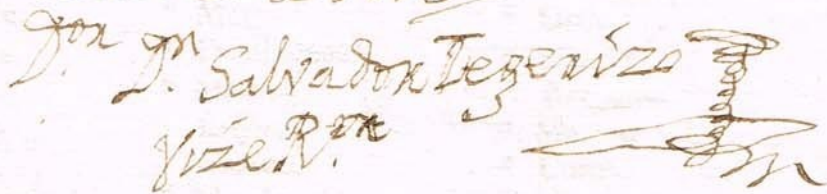 D.ᵒʳ D.ⁿ Salvador Tegerizo
Vize R.ᵒʳ